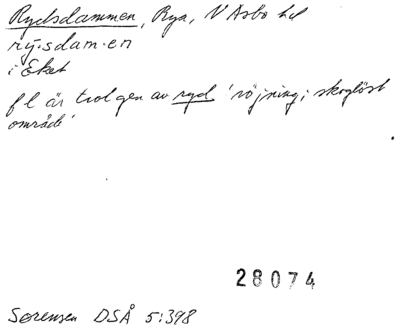 Rydsdammen, Rya, N Åsbo hd
rỳ:sdam:en
i Eket
fl är trol gen av ryd 'röjning; skoglöst
område'
28074
Sørensen DSÅ 5:398